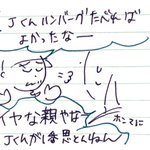 Jくんハンバーグたべれば
よかったなー
=3
イヤな親やなー
ホンマに
Jくんが1番思とんねん